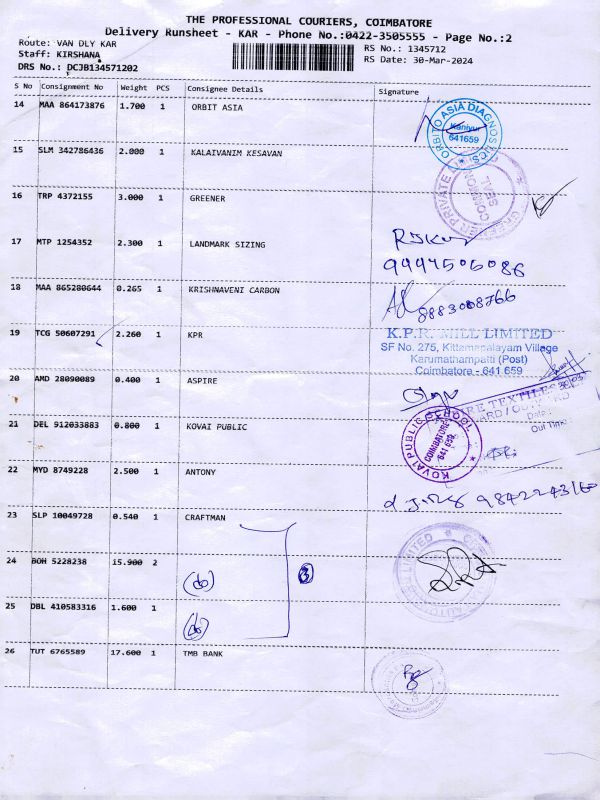 THE PROFESSIONAL COURIERS, COIMBATORE
Delivery Runsheet - KAR - Phone No.:0422-3505555 - Page No.:2
Route: VAN DLY KAR RS No.: 1345712
Staff: KIRSHANA RS Date: 30-Mar-2024
DRS No.: DCJB134571202
S No Consignment No Weight PCS Consignee Details Signature
14 MAA 864173876 1.700 1 ORBIT ASIA
ORBITO ASIA DIAGNOSTICS
Kaniyur
641659
15 SLM 342786436 2.000 1 KALAIVANIM KESAVAN
PRIVATE
COMMON
SEAL
16 TRP 4372155 3.000 1 GREENER
17 MTP 1254352 2.300 1 LANDMARK SIZING
9994506086
18 MAA 865280644 0.265 1 KRISHNAVENI CARBON
8883008766
19 TCG 50607291 2.260 1 KPR
K.P.R. MILL LIMITED
SF No. 275, Kittampalayam Village
Karumathampatti (Post)
Coimbatore - 641 659
20 AMD 28090089 0.400 1 ASPIRE
TEXTILES
Date:
Out Time:
21 DEL 912033883 0.800 1 KOVAI PUBLIC
KOVAI PUBLIC SCHOOL
COIMBATORE
641 659
22 MYD 8749228 2.500 1 ANTONY
9842243160
23 SLP 10049728 0.540 1 CRAFTMAN
LIMITED
24 BOH 5228238 15.900 2
(do)
3
25 DBL 410583316 1.600 1
(do)
26 TUT 6765589 17.600 1 TMB BANK